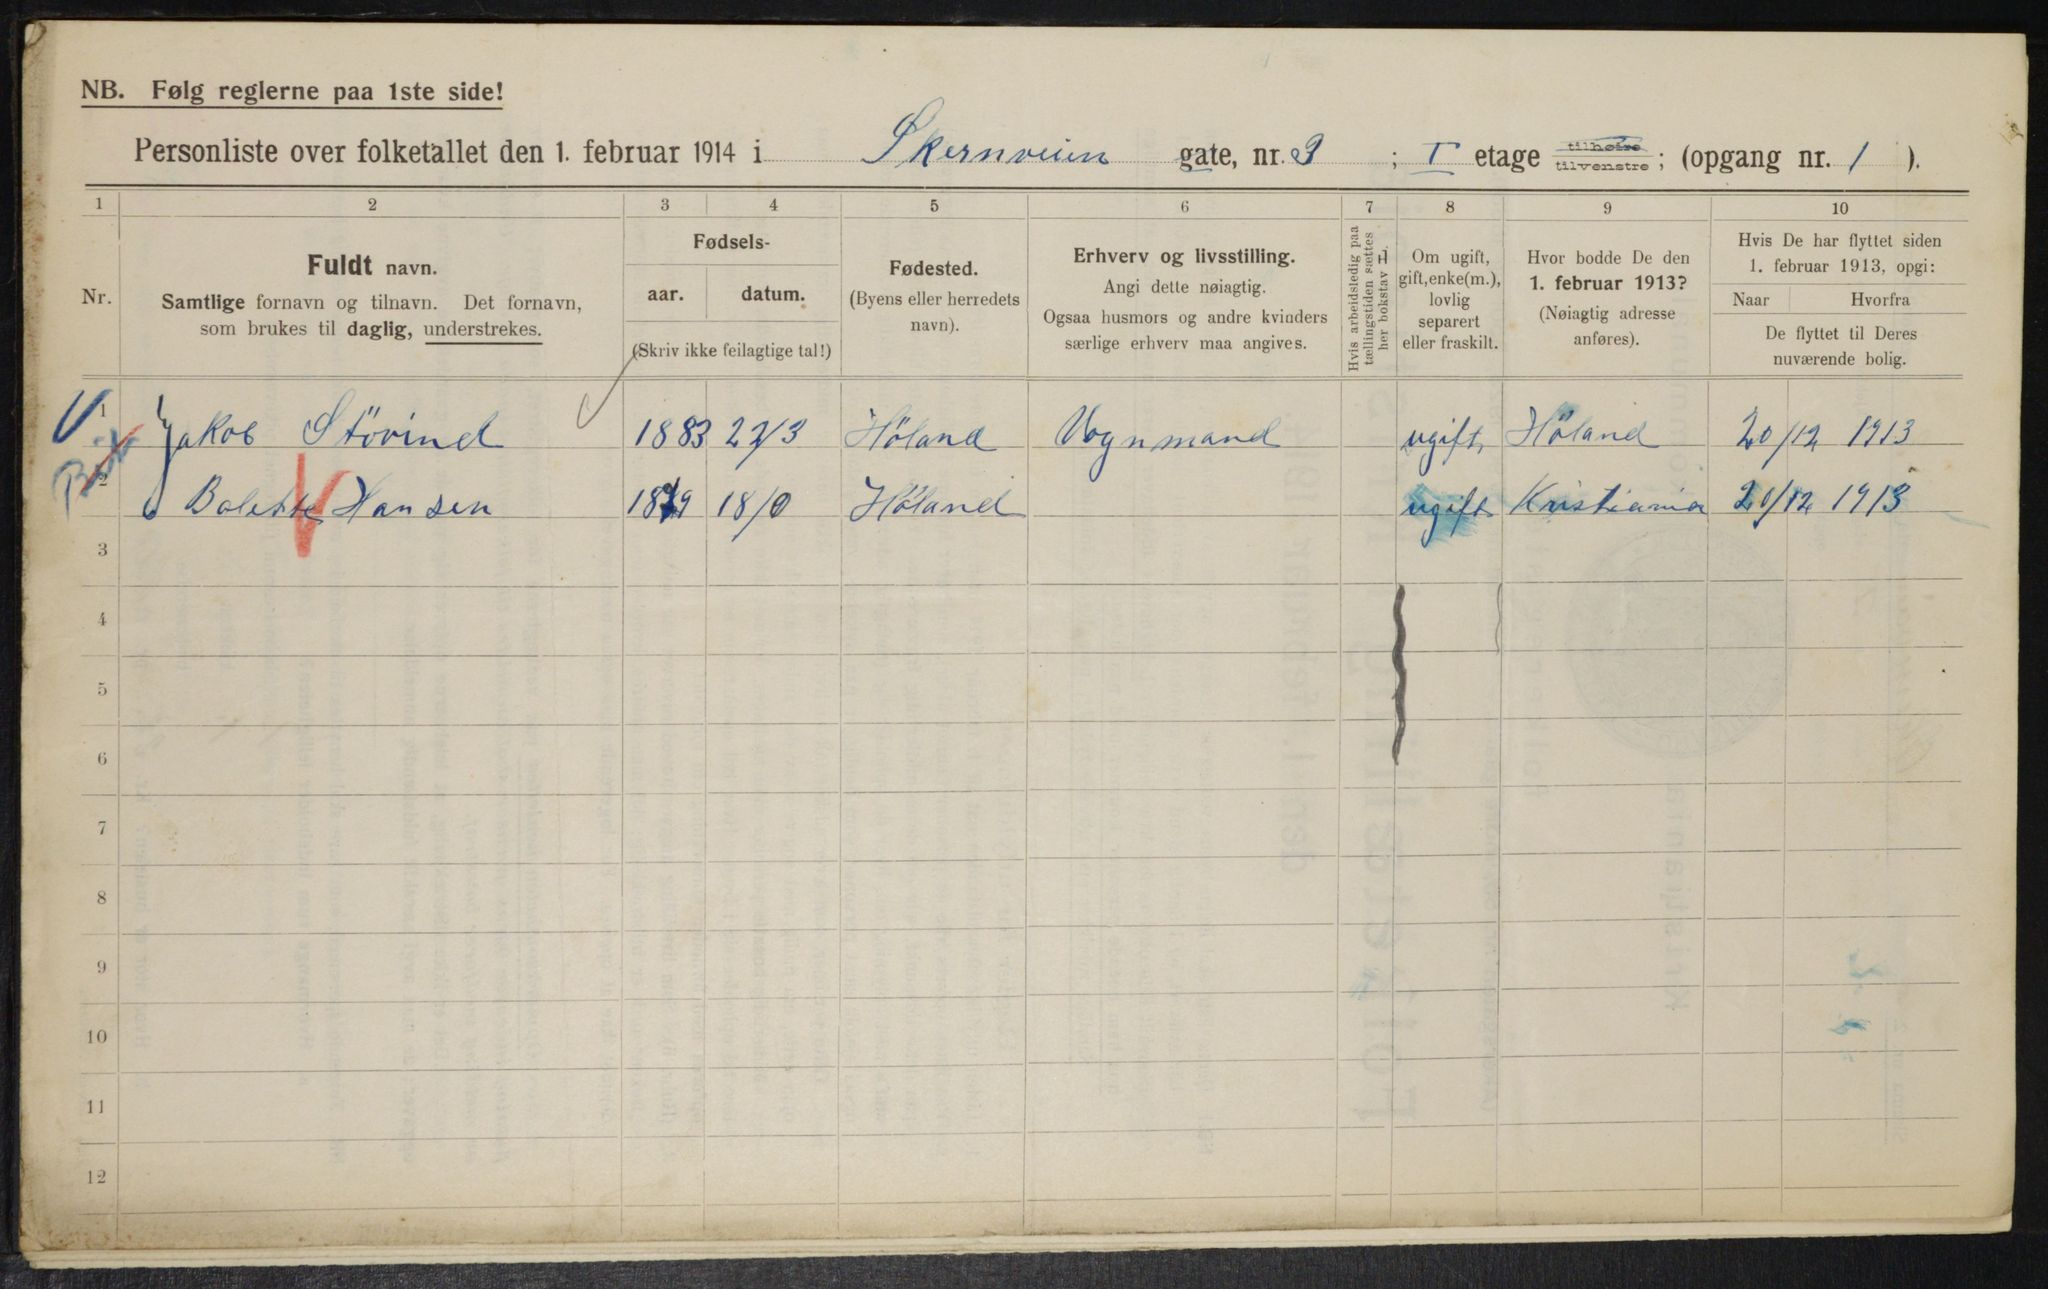 NB. Følg reglerne paa 1ste side!
Personliste over folketallet den 1. februar 1914 i Skernveien gate, nr. 9 ; I etage tilhøire tilvenstre; (opgang nr. 1 ).
1 2 3 4 5 6 7 8 9 10
Nr.
Fuldt navn.
Samtlige fornavn og tilnavn. Det fornavn,
som brukes til daglig, understrekes.
Fødsels-
aar. datum.
(Skriv ikke feilagtige tal!)
Fødested.
(Byens eller herredets
navn).
Erhverv og livsstilling.
Angi dette nøiagtig.
Ogsaa husmors og andre kvinders
særlige erhverv maa angives.
Hvis arbeidsledig paa
tællingstiden sættes
her bokstav L.
Om ugift,
gift, enke(m.),
lovlig
separert
eller fraskilt.
Hvor bodde De den
1. februar 1913?
(Nøiagtig adresse
anføres).
Hvis De har flyttet siden
1. februar 1913, opgi:
Naar Hvorfra
De flyttet til Deres
nuværende bolig.
1 Jakob Störind 1883 22/3 Höland Vognmand ugift Höland 20/12 1913
2 Bolette Hansen 1879 Höland ugift Kristiania 20/12 1913
3
4
5
6
7
8
9
10
11
12